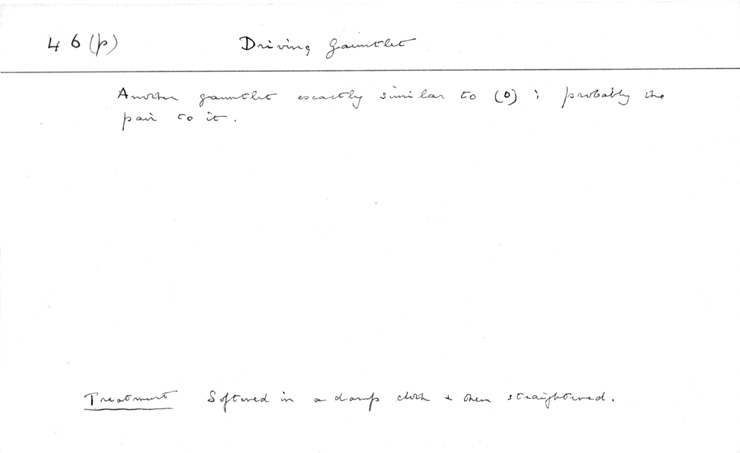 46(p) Driving gauntlet
Another gauntlet exactly similar to (o) : probably the
pair to it.
Treatment Softened in a damp cloth & then straightened.